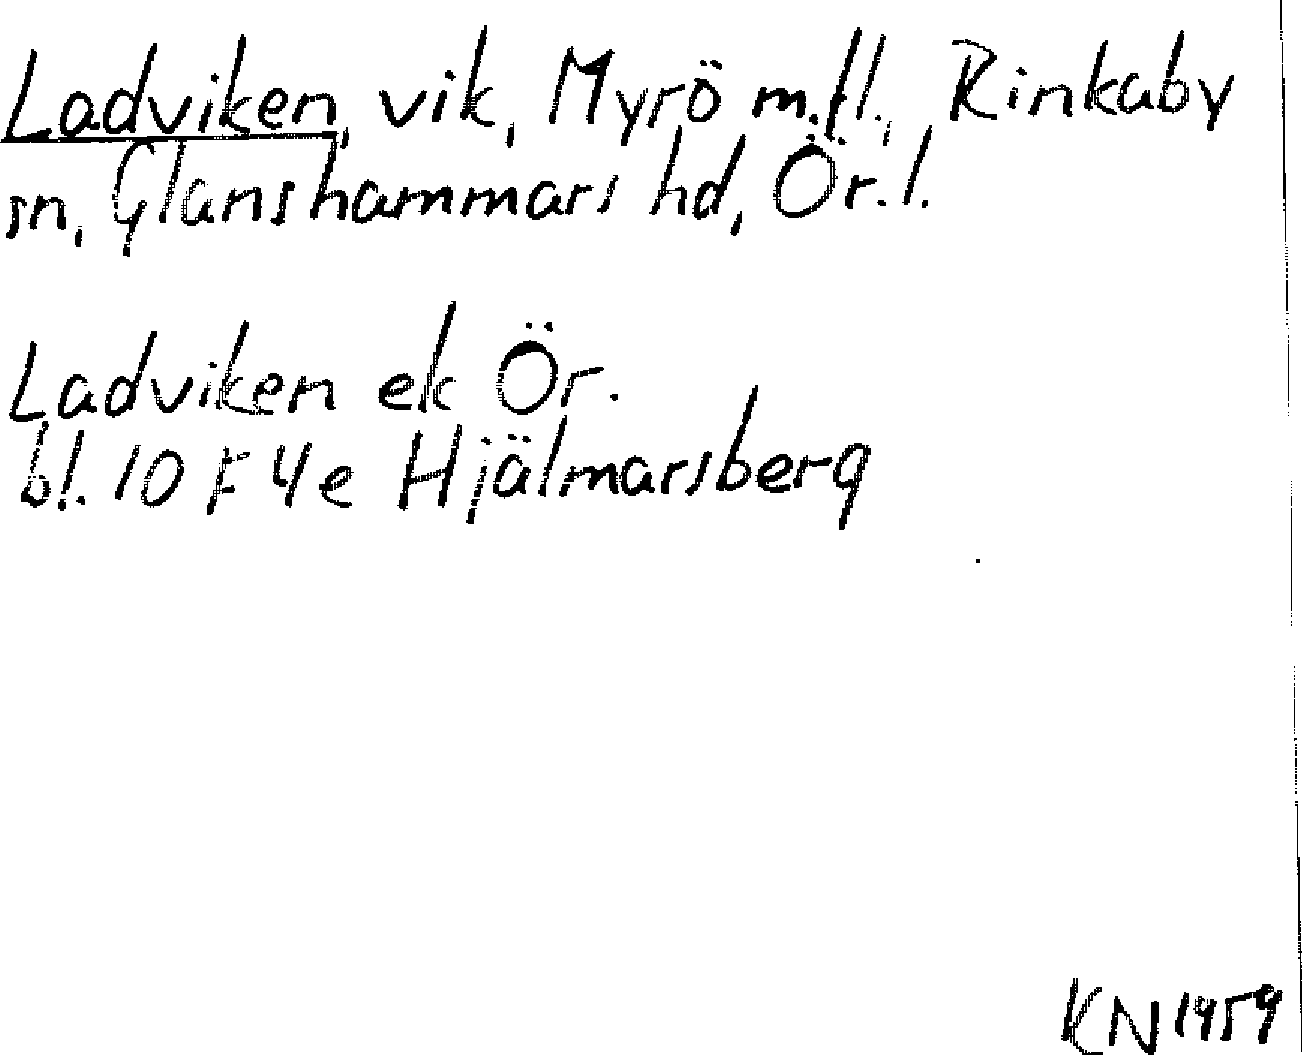 Ladviken, vik, Myrö m.fl., Rinkaby
sn, Glanshammars hd, Ör. l.
Ladviken ek Ör.
bl. 10 F 4e Hjälmarsberg
KN 1959